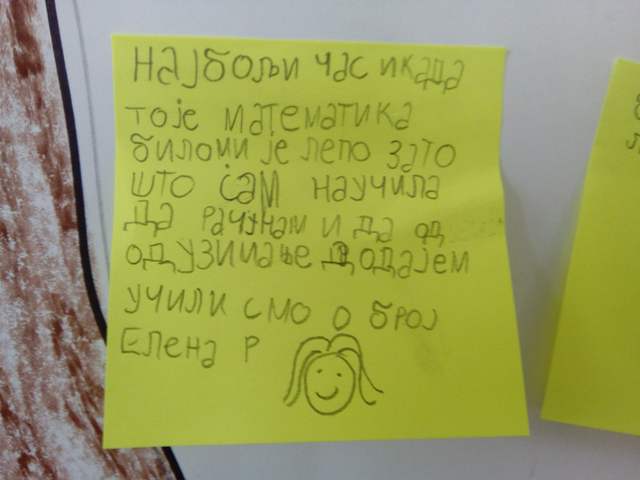 НАЈБОЉИ ЧАС ИКАДА
ТОЈЕ МАТЕМАТИКА
БИЛОМИ ЈЕ ЛЕПО ЗАТО
ШТО САМ НАУЧИЛА
ДА РАЧУНАМ И ДА ОД
ОДУЗИМАЊЕ ДОДАЈЕМ
УЧИЛИ СМО О БРОЈ
ЕЛЕНА Р